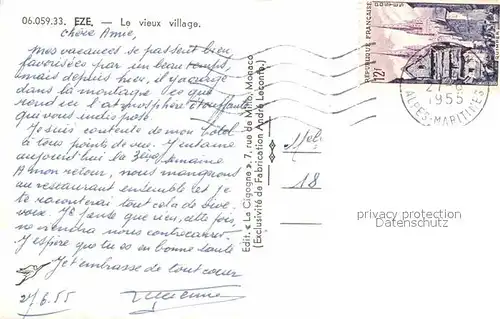 06.059.33. EZE, — Le vieux village.
Chère Amie,
mes vacances se passent bien,
favorisées par un beau temps,
mais depuis hier, il y a orage
dans la montagne ce que
rend l'atmosphère étouffante
qui vous indispose.
Je suis contente de mon hôtel
à tous points de vue. J'entame
aujourd'hui la 3ème semaine
A mon retour, nous mangerons
au restaurant ensemble et je
te raconterai tout cela de vive
voix. Je pense que rien, cette fois,
ne viendra nous contrecarrer.
J'espère que tu es en bonne santé
Je t'embrasse de tout cœur
27.6.55
Edit. « La Cigogne », 7, rue de Millo, Monaco
(Exclusivité de Fabrication André Leconte)
18
REPUBLIQUE FRANÇAISE
12F
1955
ALPES-MARITIMES
privacy protection
Datenschutz